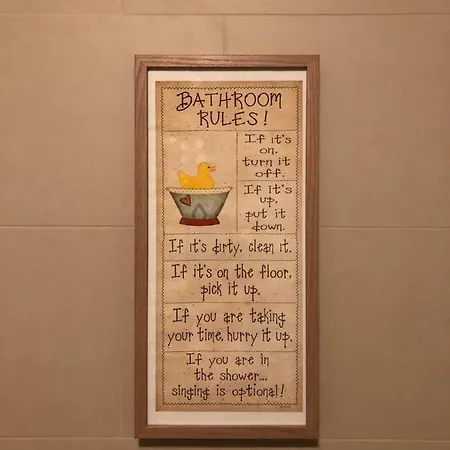 BATHROOM
RULES!
If it's
on,
turn it
off.
If it's
up,
put it
down.
If it's dirty, clean it.
If it's on the floor,
pick it up.
If you are taking
your time, hurry it up.
If you are in
the shower...
singing is optional!